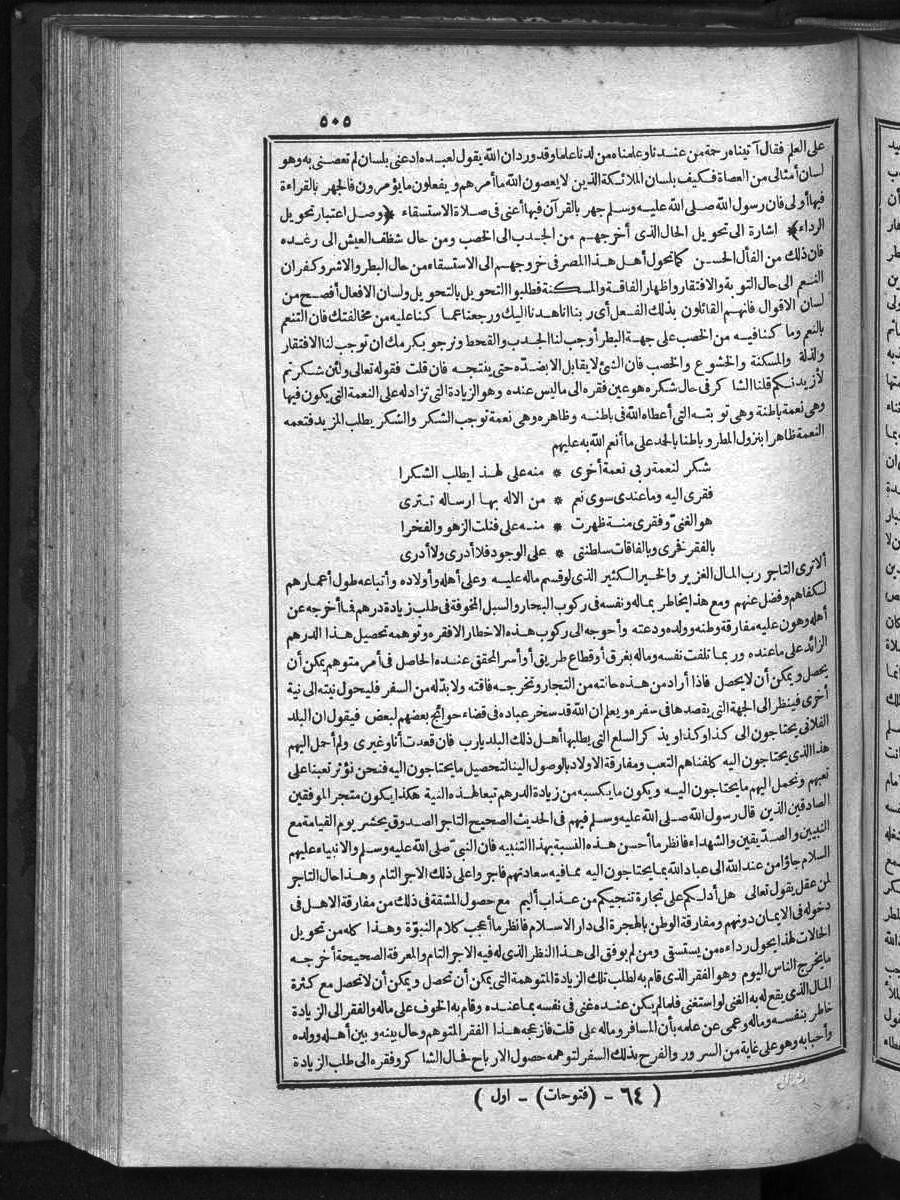 ٥٠٥
على العلم فقال آتيناه رحمة من عندنا وعلمناه من لدنا علما وقد ورد ان الله يقول لعبده ادعنى بلسان لم تعصنى به وهو
لسان أمثالى من العصاة فكيف بلسان الملائكة الذين لا يعصون الله ما أمرهم ويفعلون ما يؤمرون فالجهر بالقراءة
فيها أولى فان رسول الله صلى الله عليه وسلم جهر بالقرآن فيها أعنى فى صلاة الاستسقاء ﴿وصل اعتبار تحويل
الرداء﴾ اشارة الى تحويل الحال الذى أخرجهم من الجدب الى الخصب ومن حال شظف العيش الى رغده
فان ذلك من الفأل الحسن كما تحول أهل هذا المصر فى خروجهم الى الاستسقاء من حال البطر والاشر وكفران
النعم الى حال التوبة والافتقار واظهار الفاقة والمسكنة فطلبوا التحويل بالتحويل ولسان الافعال أفصح من
لسان الاقوال فانهم القائلون بذلك الفعل أى ربنا انا هدنا اليك ورجعنا عما كنا عليه من مخالفتك فان التنعم
بالنعم وما كنا فيه من الخصب على جهة البطر أوجب لنا الجدب والقحط ونرجو بكرمك ان توجب لنا الافتقار
والذلة والمسكنة والخشوع والخصب فان الشئ لا يقابل الا بضده حتى ينتجه فان قلت فقوله تعالى ولئن شكرتم
لأزيدنكم قلنا الشاكر فى حال شكره هو عين فقره الى ما ليس عنده وهو الزيادة التى تزاد له على النعمة التى يكون فيها
وهى نعمة باطنة وهى توبته التى أعطاه الله فى باطنه وظاهره وهى نعمة توجب الشكر والشكر يطلب المزيد فتعمه
النعمة ظاهرا بنزول المطر وباطنا بالحمد على ما أنعم الله به عليهم
شكر لنعمة ربى نعمة أخرى * منه على لهذا يطلب الشكرا
فقرى اليه وما عندى سوى نعم * من الاله بها ارساله تترى
هو الغنىّ وفقرى منة ظهرت * منه على فنلت الزهو والفخرا
بالفقر فخرى وبالفاقات سلطنتى * على الوجود فلا أدرى ولا أدرى
ألا ترى التاجر رب المال الغزير والخير الكثير الذى لو قسم ماله عليه وعلى أهله وأولاده وأتباعه طول أعمارهم
لكفاهم وفضل عنهم ومع هذا يخاطر بماله ونفسه فى ركوب البحار والسبل المخوفة فى طلب زيادة درهم فما أخرجه عن
أهله وهون عليه مفارقة وطنه وولده ودعته وأحوجه الى ركوب هذه الاخطار الا فقره وتوهمه تحصيل هذا الدرهم
الزائد على ما عنده وربما تلفت نفسه وماله بغرق أو قطاع طريق أو أسر المحقق عنده الحاصل فى أمر متوهم يمكن أن
يحصل ويمكن أن لا يحصل فاذا أراد من هذه حالته من التجار وتخرجه فاقته ولا بد له من السفر فليحول نيته الى نية
أخرى فينظر الى الجهة التى يقصدها فى سفره ويعلم ان الله قد سخر عباده فى قضاء حوائج بعضهم لبعض فيقول ان البلد
الفلانى يحتاجون الى كذا وكذا ويذكر السلع التى يطلبها أهل ذلك البلد يا رب فان قعدت أنا وغيرى ولم أحمل اليهم
هذا الذى يحتاجون اليه كلفناهم التعب ومفارقة الاولاد بالوصول الينا لتحصيل ما يحتاجون اليه فنحن نؤثر تعبنا على
تعبهم ونحمل اليهم ما يحتاجون اليه ويكون ما يكسبه من زيادة الدرهم تبعا لهذه النية هكذا يكون متجر الموفقين
الصادقين الذين قال رسول الله صلى الله عليه وسلم فيهم فى الحديث الصحيح التاجر الصدوق يحشر يوم القيامة مع
النبيين والصدّيقين والشهداء فانظر ما أحسن هذه النسبة بهذا التنبيه فان النبىّ صلى الله عليه وسلم والانبياء عليهم
السلام جاؤا من عند الله الى عباد الله بما يحتاجون اليه مما فيه سعادتهم فاجروا على ذلك الاجر التام وهذا حال التاجر
لمن عقل يقول تعالى هل أدلكم على تجارة تنجيكم من عذاب أليم مع حصول المشقة فى ذلك من مفارقة الاهل فى
دخوله فى الايمان دونهم ومفارقة الوطن بالهجرة الى دار الاسلام فانظر ما أعجب كلام النبوّة وهذا كله من تحويل
الحالات لهذا يحول رداءه من يستسقى ومن لم يوفق الى هذا النظر الذى له فيه الاجر التام والمعرفة الصحيحة أخرجه
ما يخرج الناس اليوم وهو الفقر الذى قام به لطلب تلك الزيادة المتوهمة التى يمكن أن تحصل ويمكن أن لا تحصل مع كثرة
المال الذى يقع له به الغنى لو استغنى فلما لم يكن عنده غنى فى نفسه بما عنده وقام به الخوف على ماله والفقر الى الزيادة
خاطر بنفسه وماله وعمى عن علمه بأن المسافر وماله على قلت فازعجه هذا الفقر المتوهم وحال بينه وبين أهله وولده
وأحبابه وهو على غاية من السرور والفرح بذلك السفر لتوهمه حصول الارباح فحال الشاكر وفقره الى طلب الزيادة
( ٦٤ - (فتوحات) - اول )